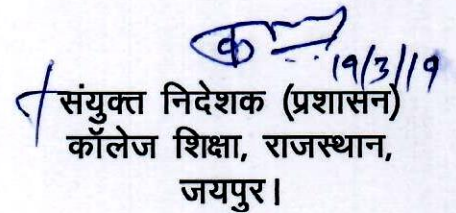 19/3/19
संयुक्त निदेशक (प्रशासन)
कॉलेज शिक्षा, राजस्थान,
जयपुर।